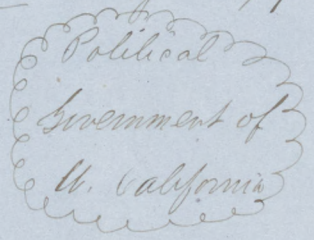 Political
Government of
U. California